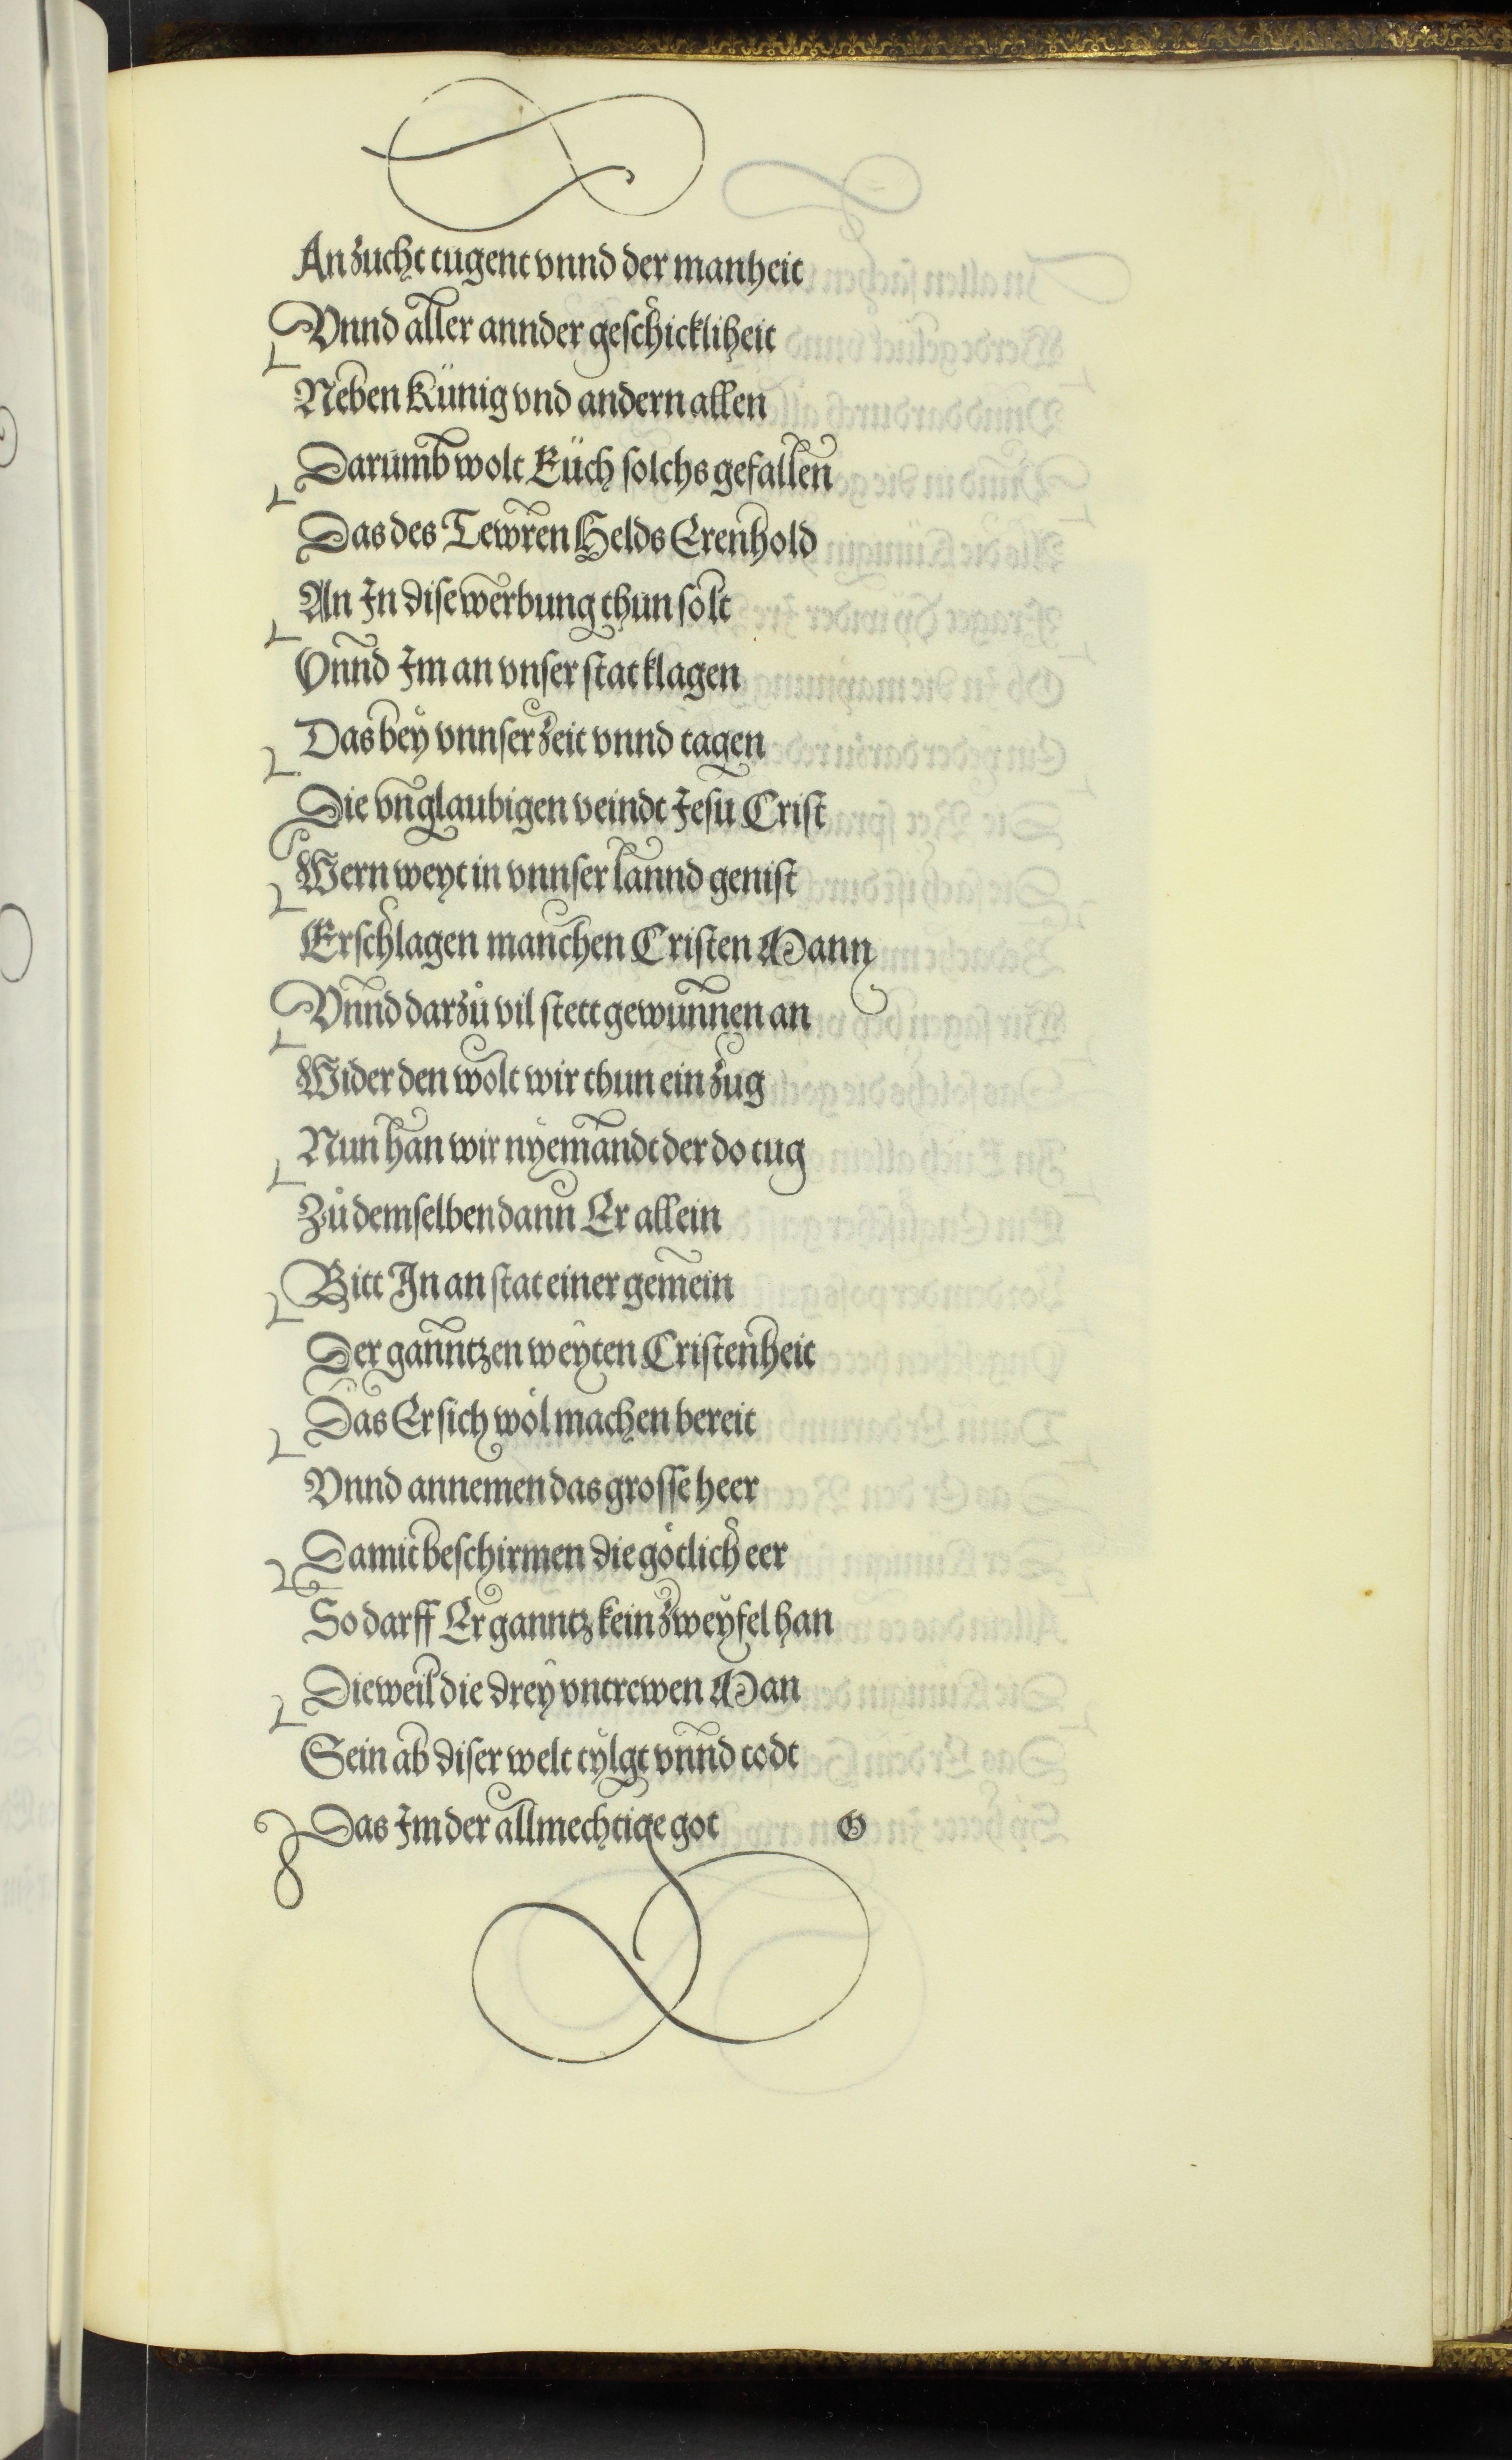 An zucht tugent vnnd der manheit
Vnnd aller annder geschickliheit
Neben Künig vnd andern allen
Darumb wolt Eüch solchs gefallen
Das des Tewren Helds Erenhold
An In dise werbung thun solt
Vnnd Im an vnser stat klagen
Das bey vnnser zeit vnnd tagen
Die vnglaubigen veindt Jesu Crist
Wern weyt in vnnser lannd genist
Erschlagen manchen Cristen Mann
Vnnd darzů vil stett gewunnen an
Wider den wolt wir thun ein zug
Nun han wir nyemandt der do tug
Zů demselben dann Er allein
Bitt In an stat einer gemein
Der ganntzen weyten Cristenheit
Das Er sich wöl machen bereit
Vnnd annemen das grosse heer
Damit beschirmen die götlich eer
So darff Er ganntz kein zweyfel han
Dieweil die drey vntrewen Man
Sein ab diser welt tylgt vnnd todt
Das Im der allmechtige got G